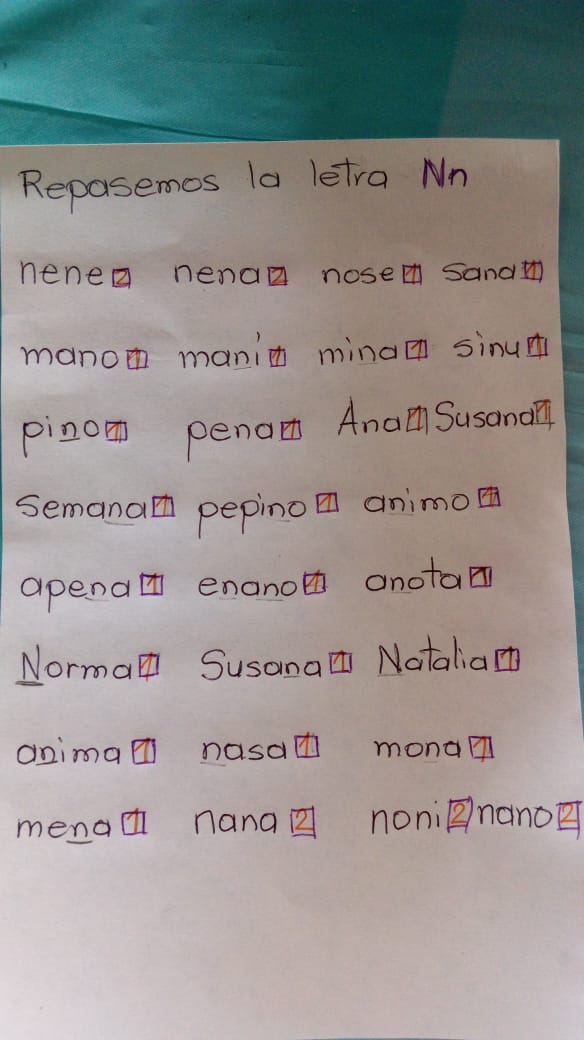 Repasemos la letra Nn
nene 2 nena 2 nose 1 sana 1
mano 1 maní 1 mina 1 sinu 1
pino 1 pena 1 Ana 1 Susana 1
semana 1 pepino 1 animo 1
apena 1 enano 1 anota 1
Norma 1 Susana 1 Natalia 1
anima 1 nasa 1 mona 1
mena 1 nana 2 noni 2 nano 2